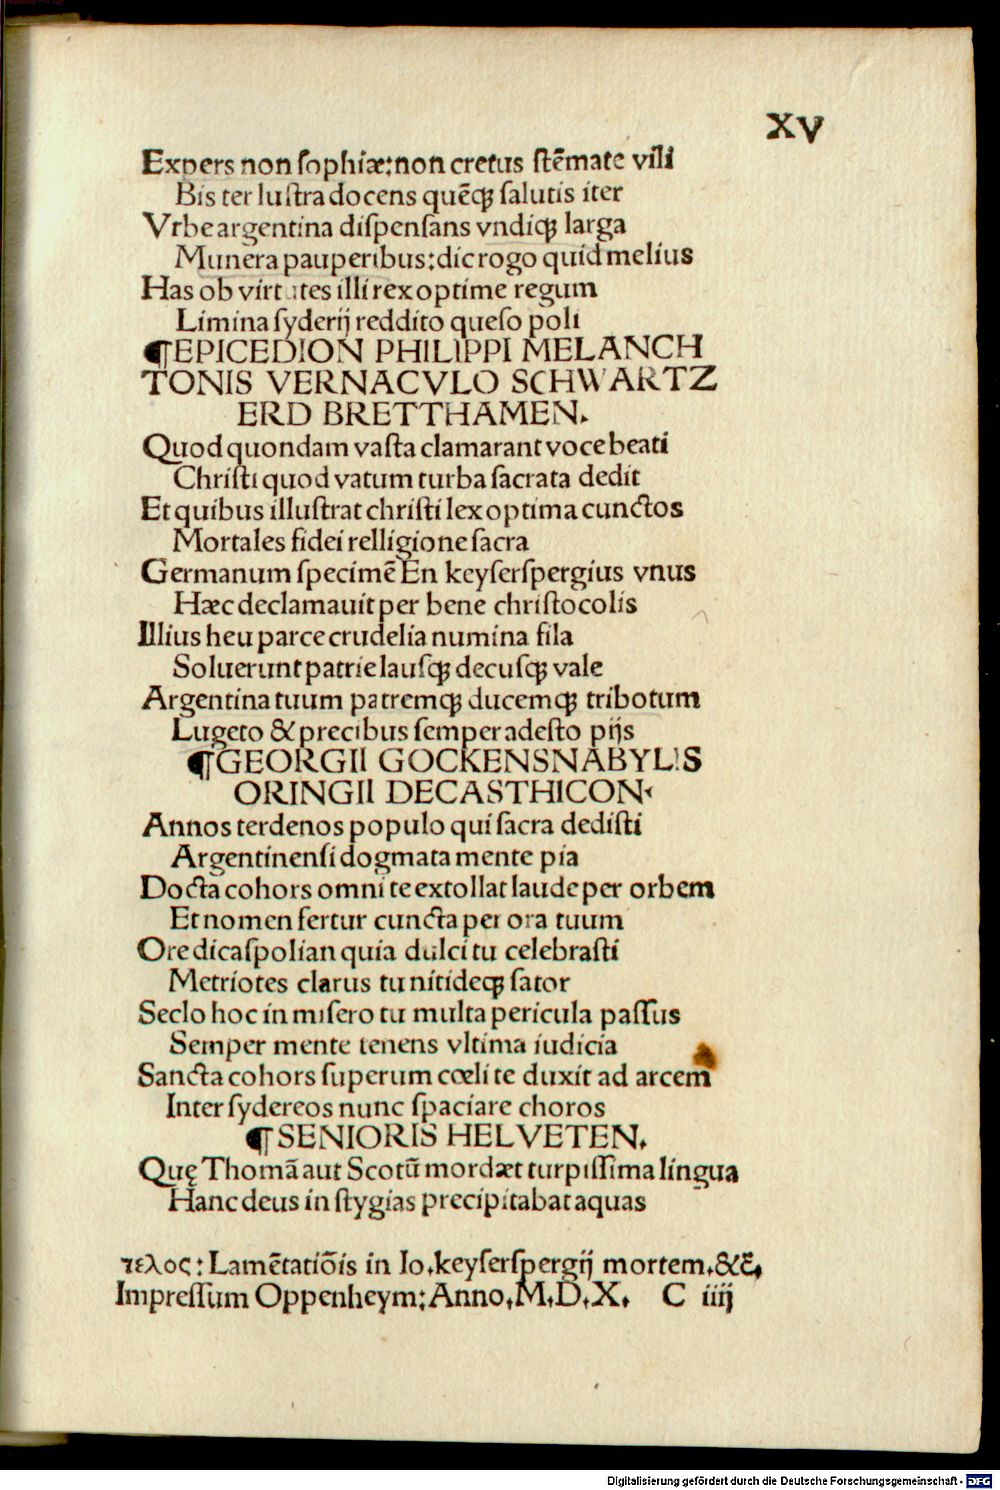 XV
Expers non sophiæ:non cretus stẽmate vili
Bis ter lustra docens quẽqꝫ salutis iter
Vrbe argentina dispensans vndiqꝫ larga
Munera pauperibus:dic rogo quid melius
Has ob virtutes illi rex optime regum
Limina syderij reddito queso poli
¶EPICEDION PHILIPPI MELANCH
TONIS VERNACVLO SCHWARTZ
ERD BRETTHAMEN.
Quod quondam vasta clamarant voce beati
Christi quod vatum turba sacrata dedit
Et quibus illustrat christi lex optima cunctos
Mortales fidei relligione sacra
Germanum specimẽ En keyserspergius vnus
Hæc declamauit per bene christocolis
Illius heu parce crudelia numina fila
Soluerunt patrie lausqꝫ decusqꝫ vale
Argentina tuum patremqꝫ ducemqꝫ tribotum
Lugeto & precibus semper adesto pijs
¶GEORGII GOCKENSNABYLIS
ORINGII DECASTHICON
Annos terdenos populo qui sacra dedisti
Argentinensi dogmata mente pia
Docta cohors omni te extollat laude per orbem
Et nomen fertur cuncta per ora tuum
Ore dicaspolian quia dulci tu celebrasti
Metriotes clarus tu nitideqꝫ sator
Seclo hoc in misero tu multa pericula passus
Semper mente tenens vltima iudicia
Sancta cohors superum cœli te duxit ad arcem
Inter sydereos nunc spaciare choros
¶SENIORIS HELVETEN.
Quę Thomã aut Scotũ mordæt turpissima lingua
Hanc deus in stygias precipitabat aquas
τελος: Lamẽtatiõis in Io.keyserspergij mortem.&ξ.
Impressum Oppenheym:Anno.M.D.X. C iiij
Digitalisierung gefördert durch die Deutsche Forschungsgemeinschaft - DFG